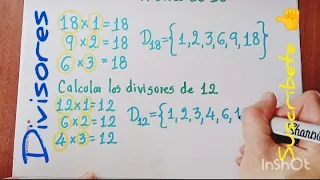 Divisores
18x1=18
9x2=18
6x3=18
D18={1,2,3,6,9,18}
Calcular los divisores de 12
12x1=12
6x2=12
4x3=12
D12={1,2,3,4,6,1
Suscríbete
Sharpie
InShot